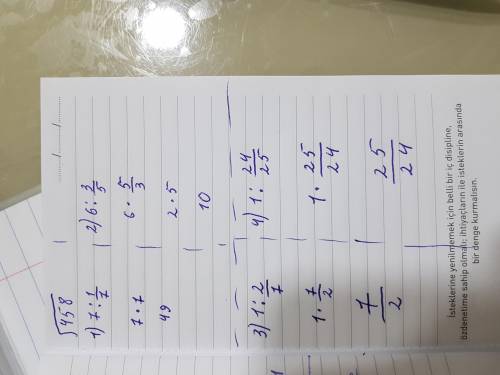 ..../..../....
458
1) 7 : 1/7
7 · 7
49
2) 6 : 3/5
6 · 5/3
2 · 5
10
3) 1 : 2/7
1 · 7/2
7/2
4) 1 : 24/25
1 · 25/24
25/24
İsteklerine yenilmemek için belli bir iç disipline,
özdenetime sahip olmalı; ihtiyaçların ile isteklerin arasında
bir denge kurmalısın.